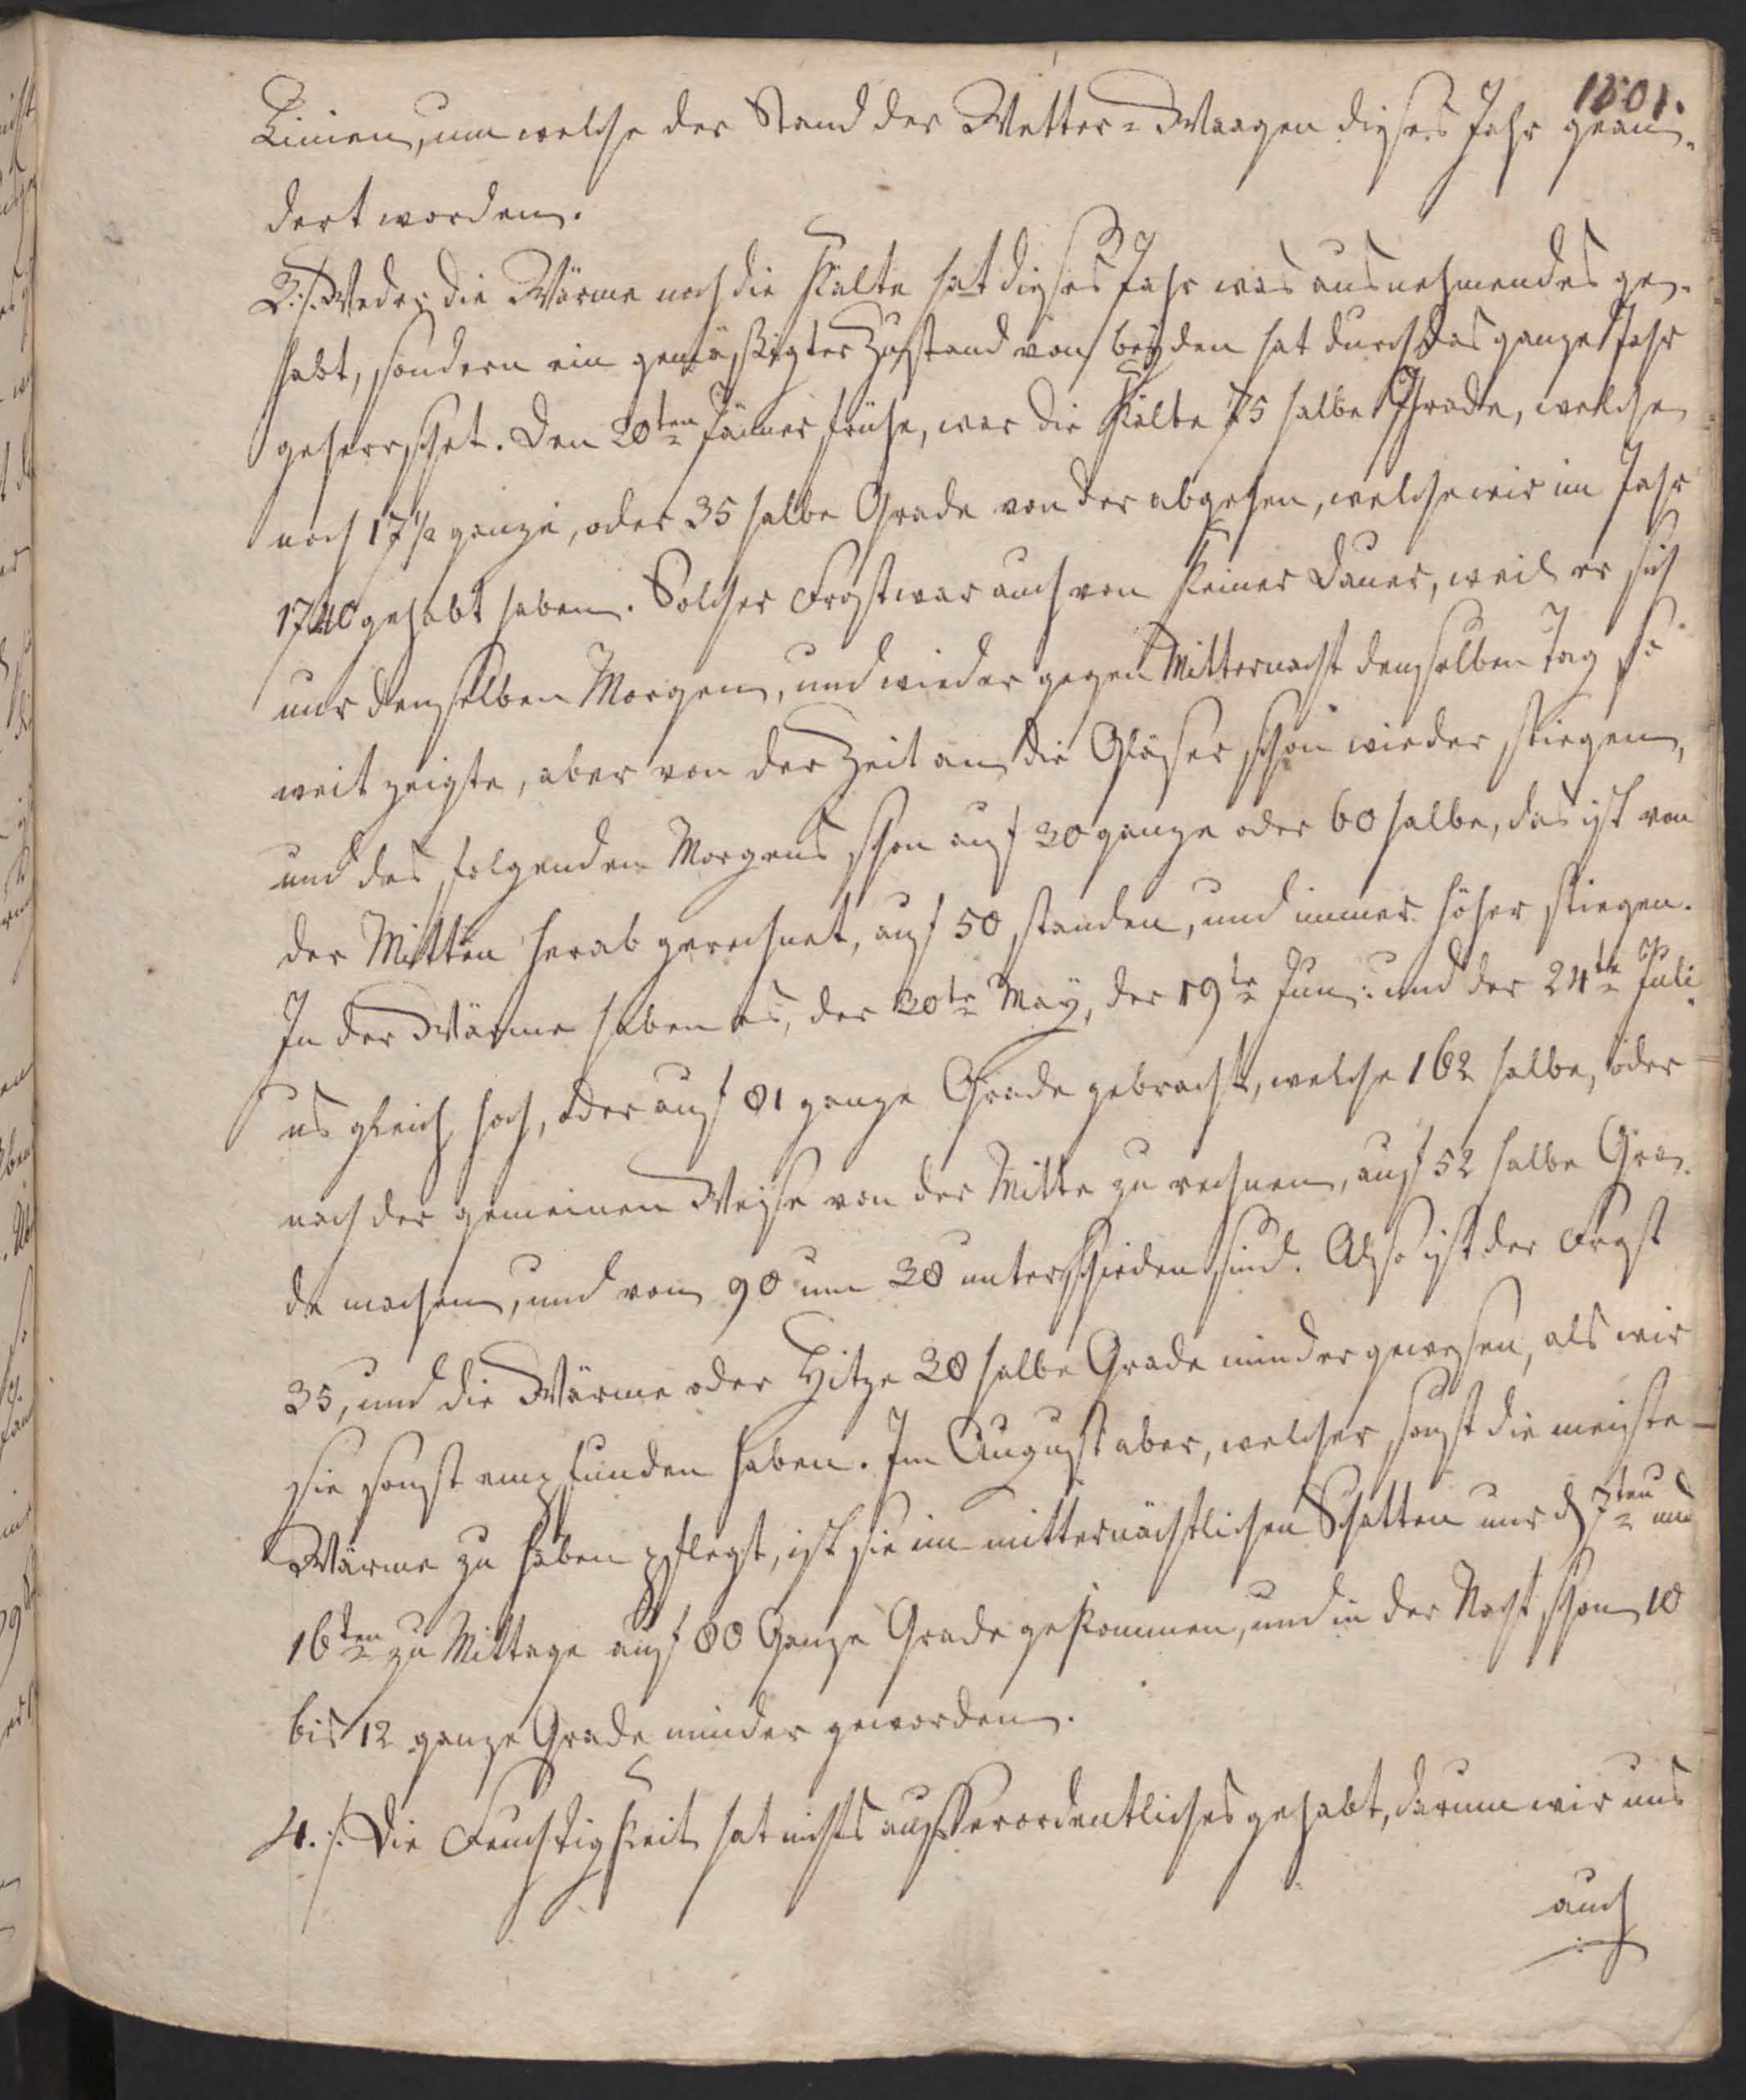 1801.
Linien, um welche der Stand der Wetter-Waagen dieses Jahr geän-
dert worden.
3.) Weder die Wärme noch die Kälte hat dieses Jahr was ausnehmendes ge-
habt, sondern ein gemäßigter Zustand von beyden hat durch das ganze Jahr
geherrschet. Den 20ten Jänner frühe, war die Kälte 75 halbe Grade, welche
noch 17½ ganze, oder 35 halbe Grade von der abgehen, welche wir im Jahr
1740 gehabt haben. Solcher Frost war auch von keiner Dauer, weil er sich
nur denselben Morgen, und wieder gegen Mitternacht denselben Tag so
weit zeigte, aber von der Zeit an die Gläser schon wieder stiegen,
und des folgenden Morgens schon auf 30 ganze oder 60 halbe, das ist von
der Mitten herab gerechnet, auf 50 standen, und immer höher stiegen.
In der Wärme haben es, der 20te May, der 19te Jun: und der 24te Juli
es gleich hoch, oder auf 81 ganze Grade gebracht, welche 162 halbe, oder
nach der gemeinen Weise von der Mitte zu rechnen, auf 52 halbe Gra-
de machen, und von 90 um 38 unterschieden sind. Also ist der Frost
35, und die Wärme oder Hitze 38 halbe Grade minder gewesen, als wir
sie sonst empfunden haben. Im August aber, welcher sonst die meiste
Wärme zu haben pflegt, ist sie im mitternächtlichen Schatten nur d 7ten und
16ten zu Mittage auf 80 Ganze Grade gekommen, und in der Nacht schon 10
bis 12 ganze Grade minder geworden.
4.) Die Feuchtigkeit hat nichts außerordentliches gehabt, darum wir uns
auch